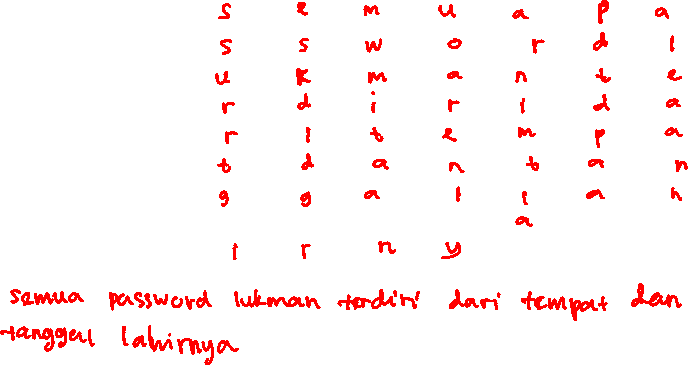 s e m u a p a
s s w o r d l
u k m a n t e
r d i r i d a
r i t e m p a
t d a n t a n
g g a l l a h
a
i r n y
semua password lukman terdiri dari tempat dan
tanggal lahirnya